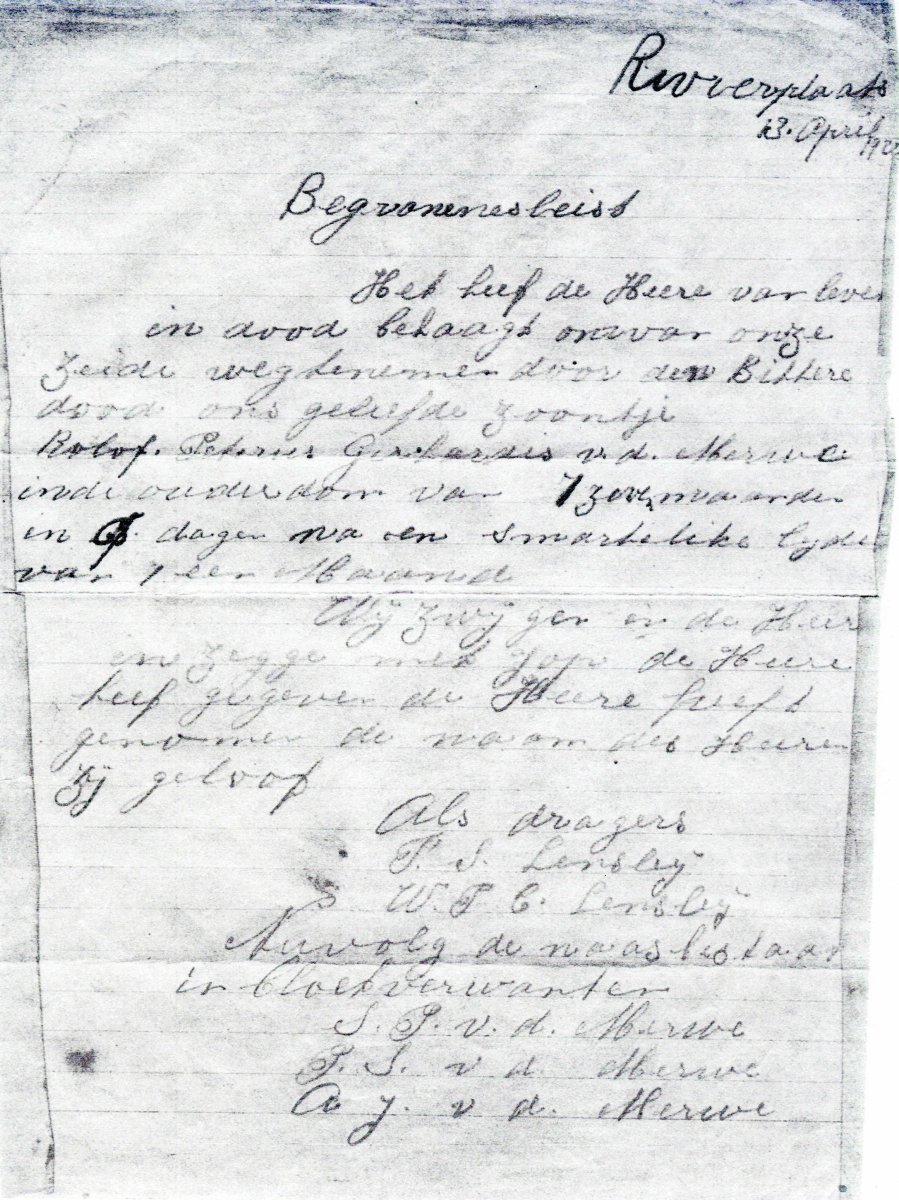 Rivverplaats
13. April
Begravenesbeist
Het heef de Heere van leven
in dood behaagt omvan onze
zeide wegtenemen door den Bittere
dood ons geliefde zoontje
Rolof. Peterus Gerhardis v.d. Merwe
inde ouderdom van 7 zeven maanden
in dagen na en smartelike lyde
van 1 een Maand
Wij zwijgen in de Heer
en zegge met Jop de Heere
heef gegeven de Heere heeft
genomen de naam des Heeren
zij geloof
Als dragers
P. S. Lensley
W. P. C. Lensley
Nuvolg de naasbestaan
in Bloetverwanten
S. P. v. d. Merwe
P. S. v d. Merwe
A J. v d. Merwe